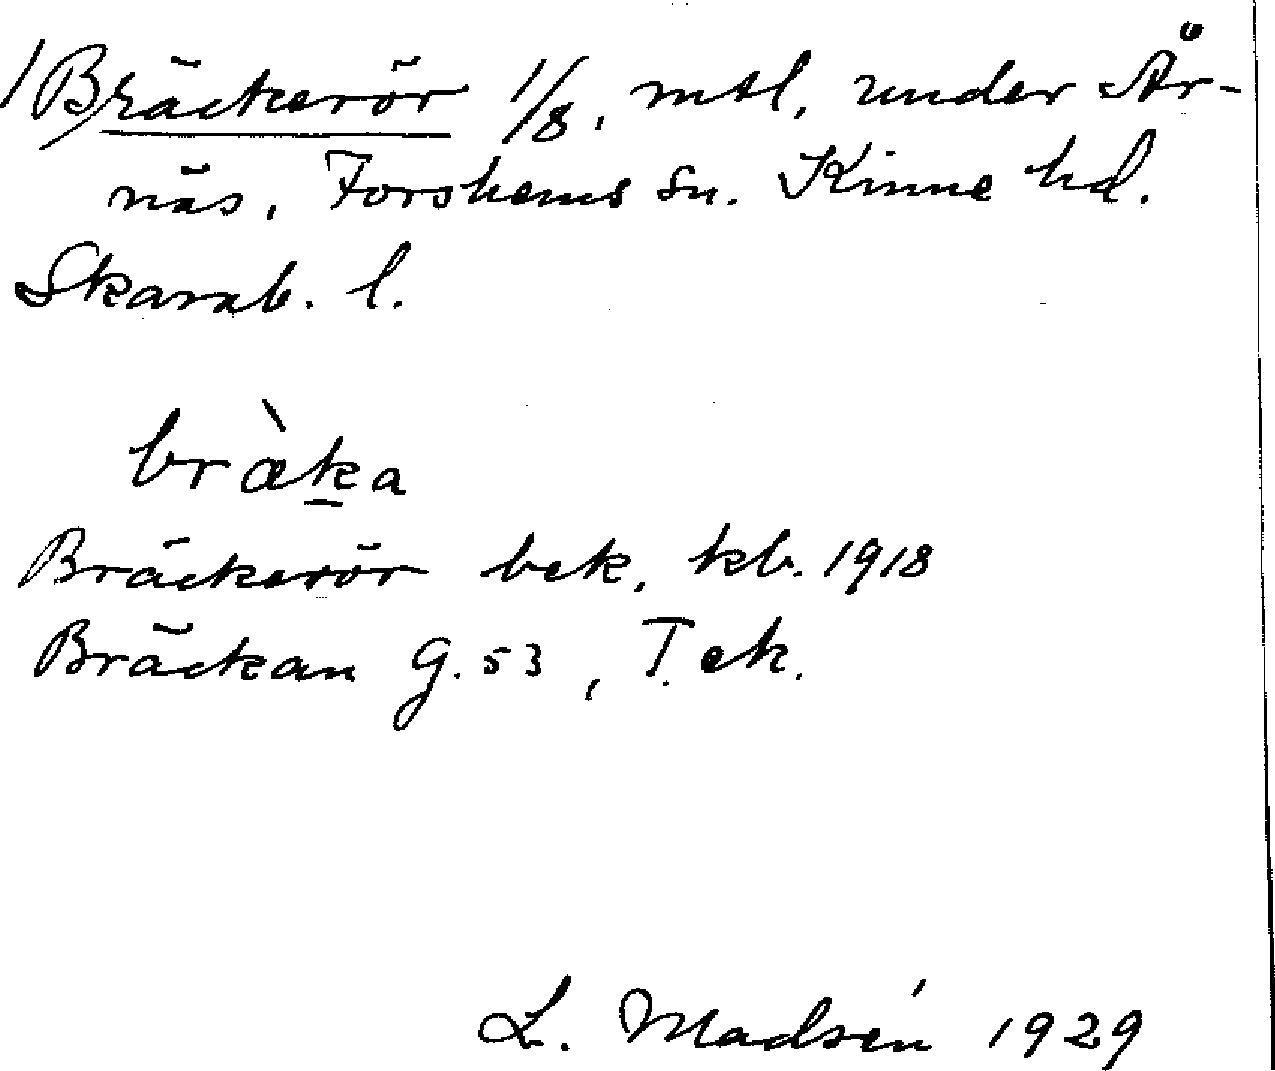 /Bräckerör 1/8, mtl, under År-
näs, Forshems sn. Kinne hd.
Skarab. l.
bràka
Bräckerör bek, kb. 1918
Bräckan G. 53, T. ek.
L. Madsén 1929